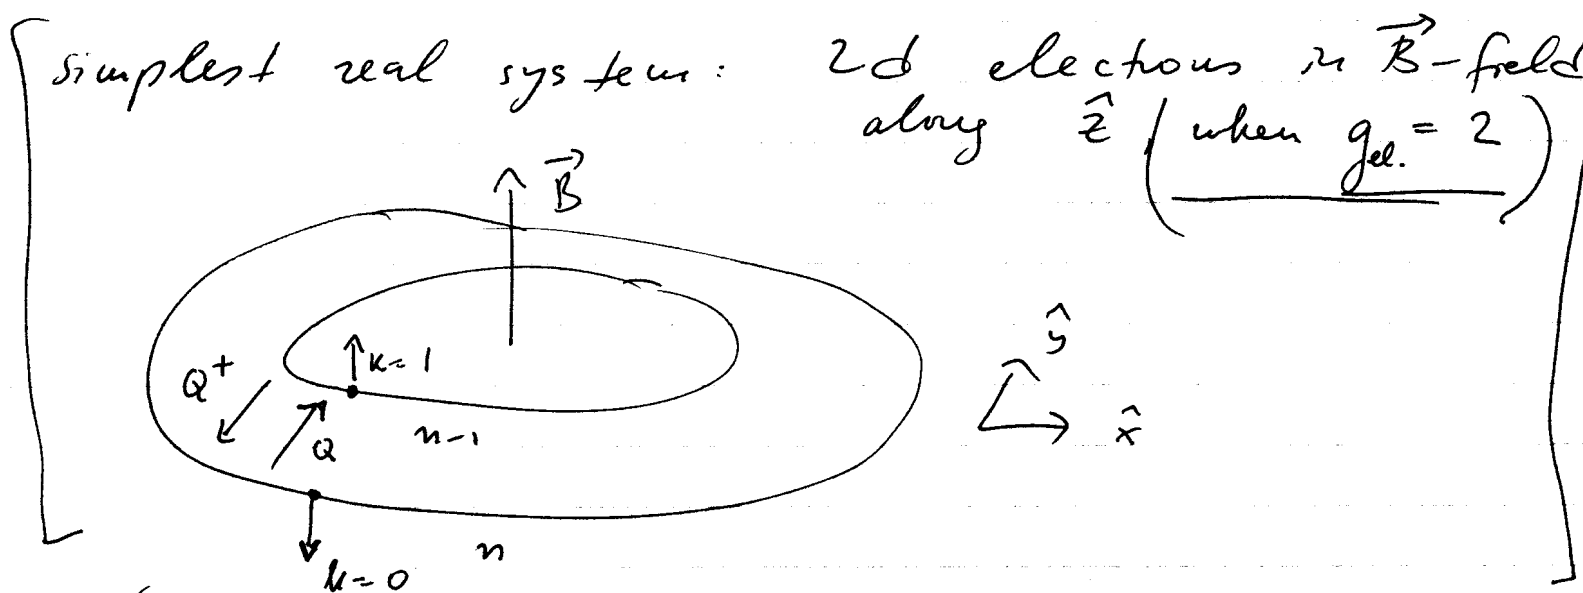 simplest real system: 2d electrons in $\vec{B}$-field
along $\hat{z}$ (when $g_{el.} = 2$)
$\vec{B}$
$\hat{y}$
k=1
$Q^+$
$\hat{x}$
n-1
Q
n
k=0